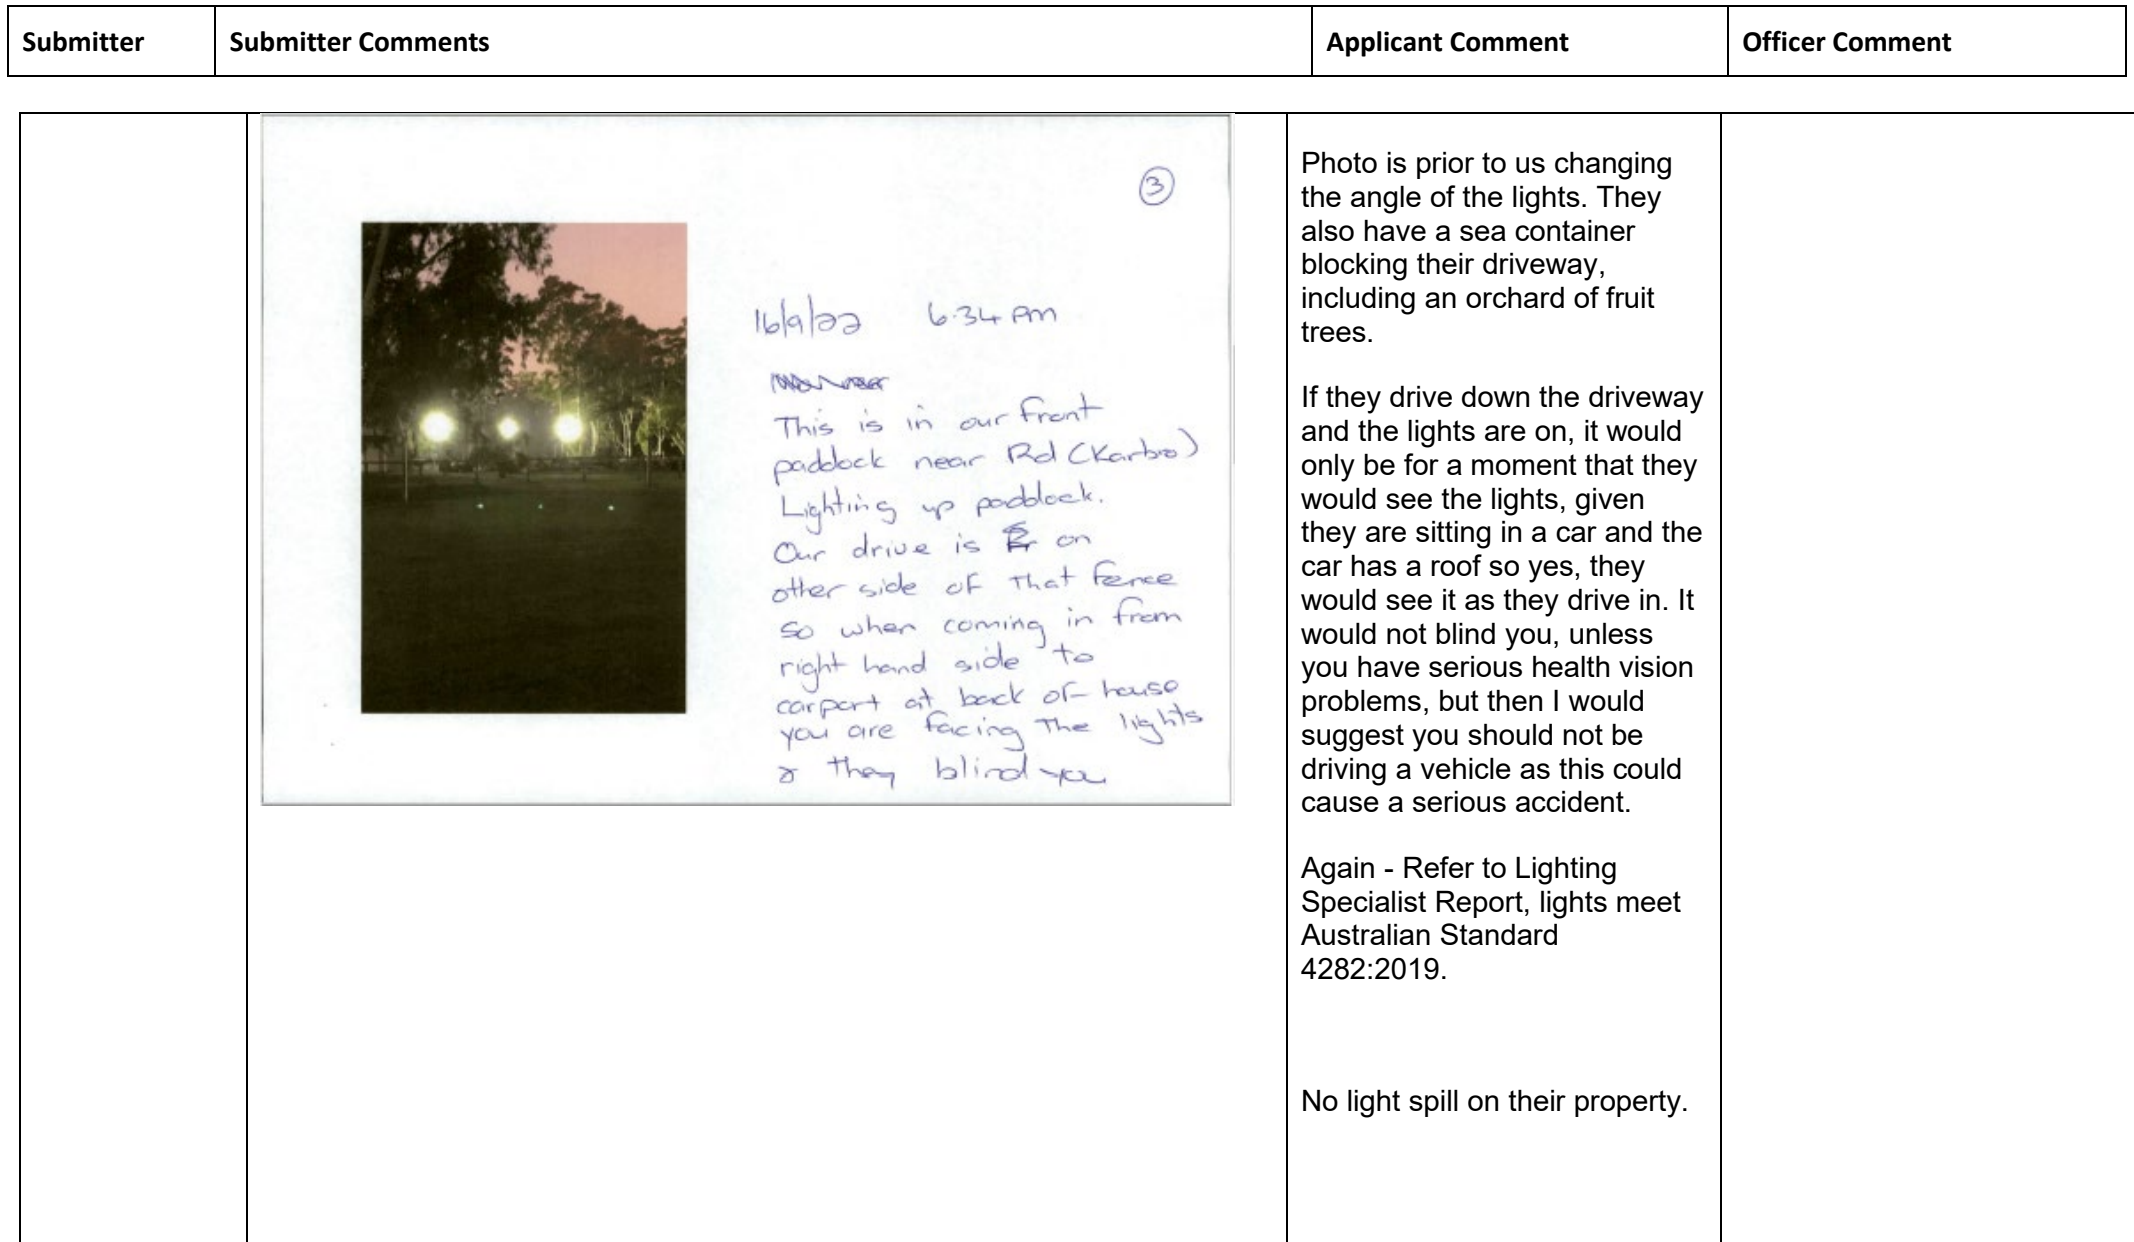 Submitter
Submitter Comments
Applicant Comment
Officer Comment
3
16/9/22 6.34 pm
This is in our front
paddock near Rd (Karbro)
Lighting up paddock.
Our drive is on
other side of that fence
so when coming in from
right hand side to
carport at back of house
you are facing the lights
& they blind you
Photo is prior to us changing
the angle of the lights. They
also have a sea container
blocking their driveway,
including an orchard of fruit
trees.
If they drive down the driveway
and the lights are on, it would
only be for a moment that they
would see the lights, given
they are sitting in a car and the
car has a roof so yes, they
would see it as they drive in. It
would not blind you, unless
you have serious health vision
problems, but then I would
suggest you should not be
driving a vehicle as this could
cause a serious accident.
Again - Refer to Lighting
Specialist Report, lights meet
Australian Standard
4282:2019.
No light spill on their property.